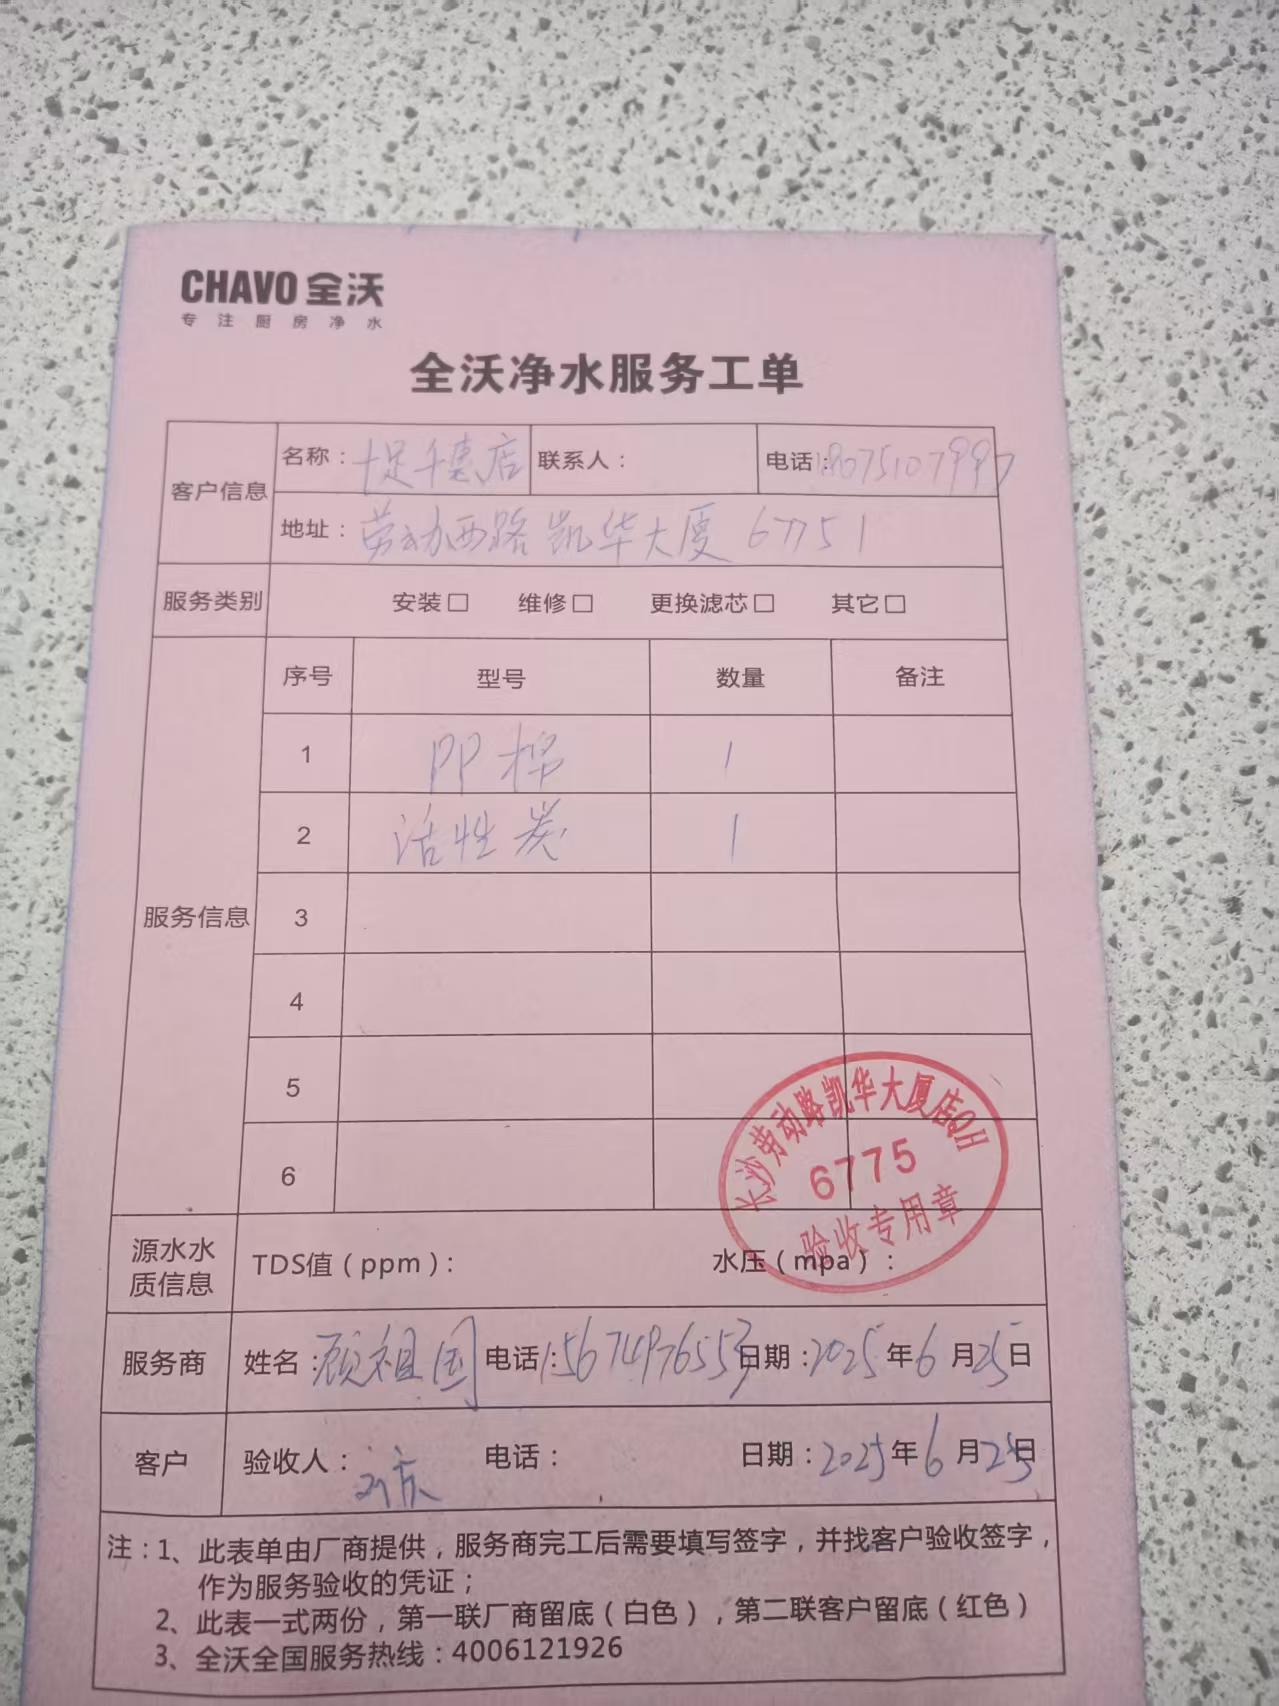 CHAVO 全沃
专注厨房净水
全沃净水服务工单
客户信息
名称：十足千惠店 联系人： 电话：18075107997
地址：劳动西路凯华大厦 67751
服务类别 安装□ 维修□ 更换滤芯□ 其它□
服务信息
序号 型号 数量 备注
1 PP棉 1
2 活性炭 1
3
4
5
6
长沙劳动路凯华大厦店QH
6775
验收专用章
源水水质信息 TDS值（ppm）： 水压（mpa）：
服务商 姓名：顾祖国 电话：15674976553 日期：2025年6月25日
客户 验收人： 电话： 日期：2025年6月25日
注：1、此表单由厂商提供，服务商完工后需要填写签字，并找客户验收签字，
作为服务验收的凭证；
2、此表一式两份，第一联厂商留底（白色），第二联客户留底（红色）
3、全沃全国服务热线：4006121926